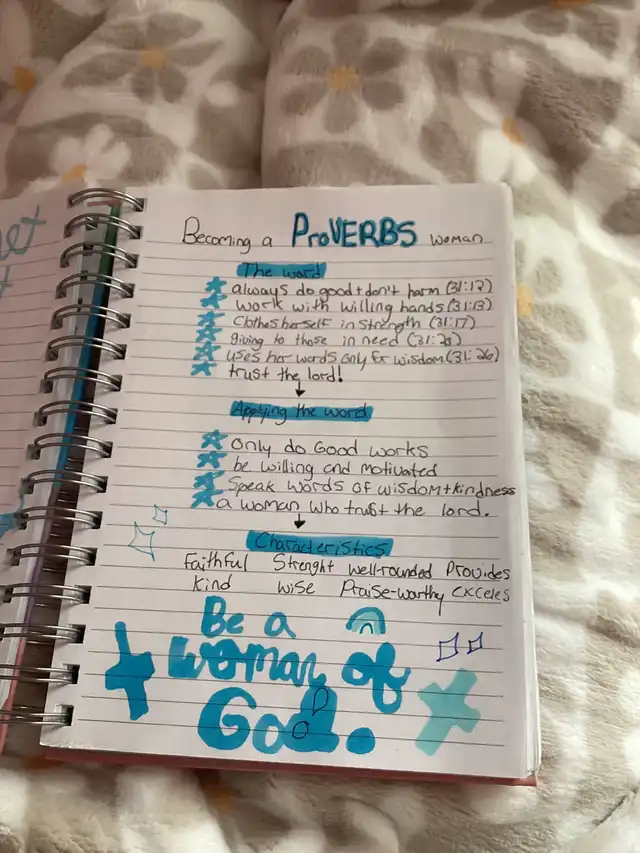 Becoming a ProVERBS woman
The word
always do good + don't harm (31:12)
work with willing hands (31:13)
Clothes herself in strength (31:17)
giving to those in need (31:20)
uses her words only for wisdom (31:26)
trust the lord!
Applying the word
Only do Good works
be willing and motivated
Speak words of wisdom + kindness
a woman who trust the lord.
Characteristics
Faithful Strenght well-rounded Provides
Kind wise Praise-worthy exceles
Be a
woman of
God.